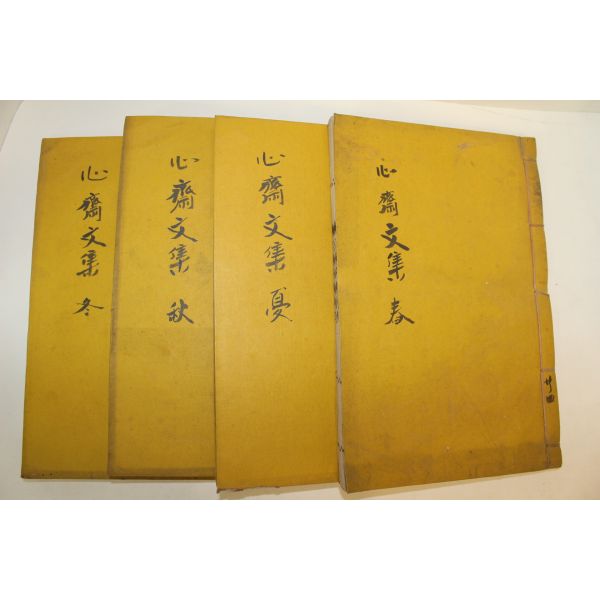 心齋文集 春
共四
心齋文集 夏
心齋文集 秋
心齋文集 冬